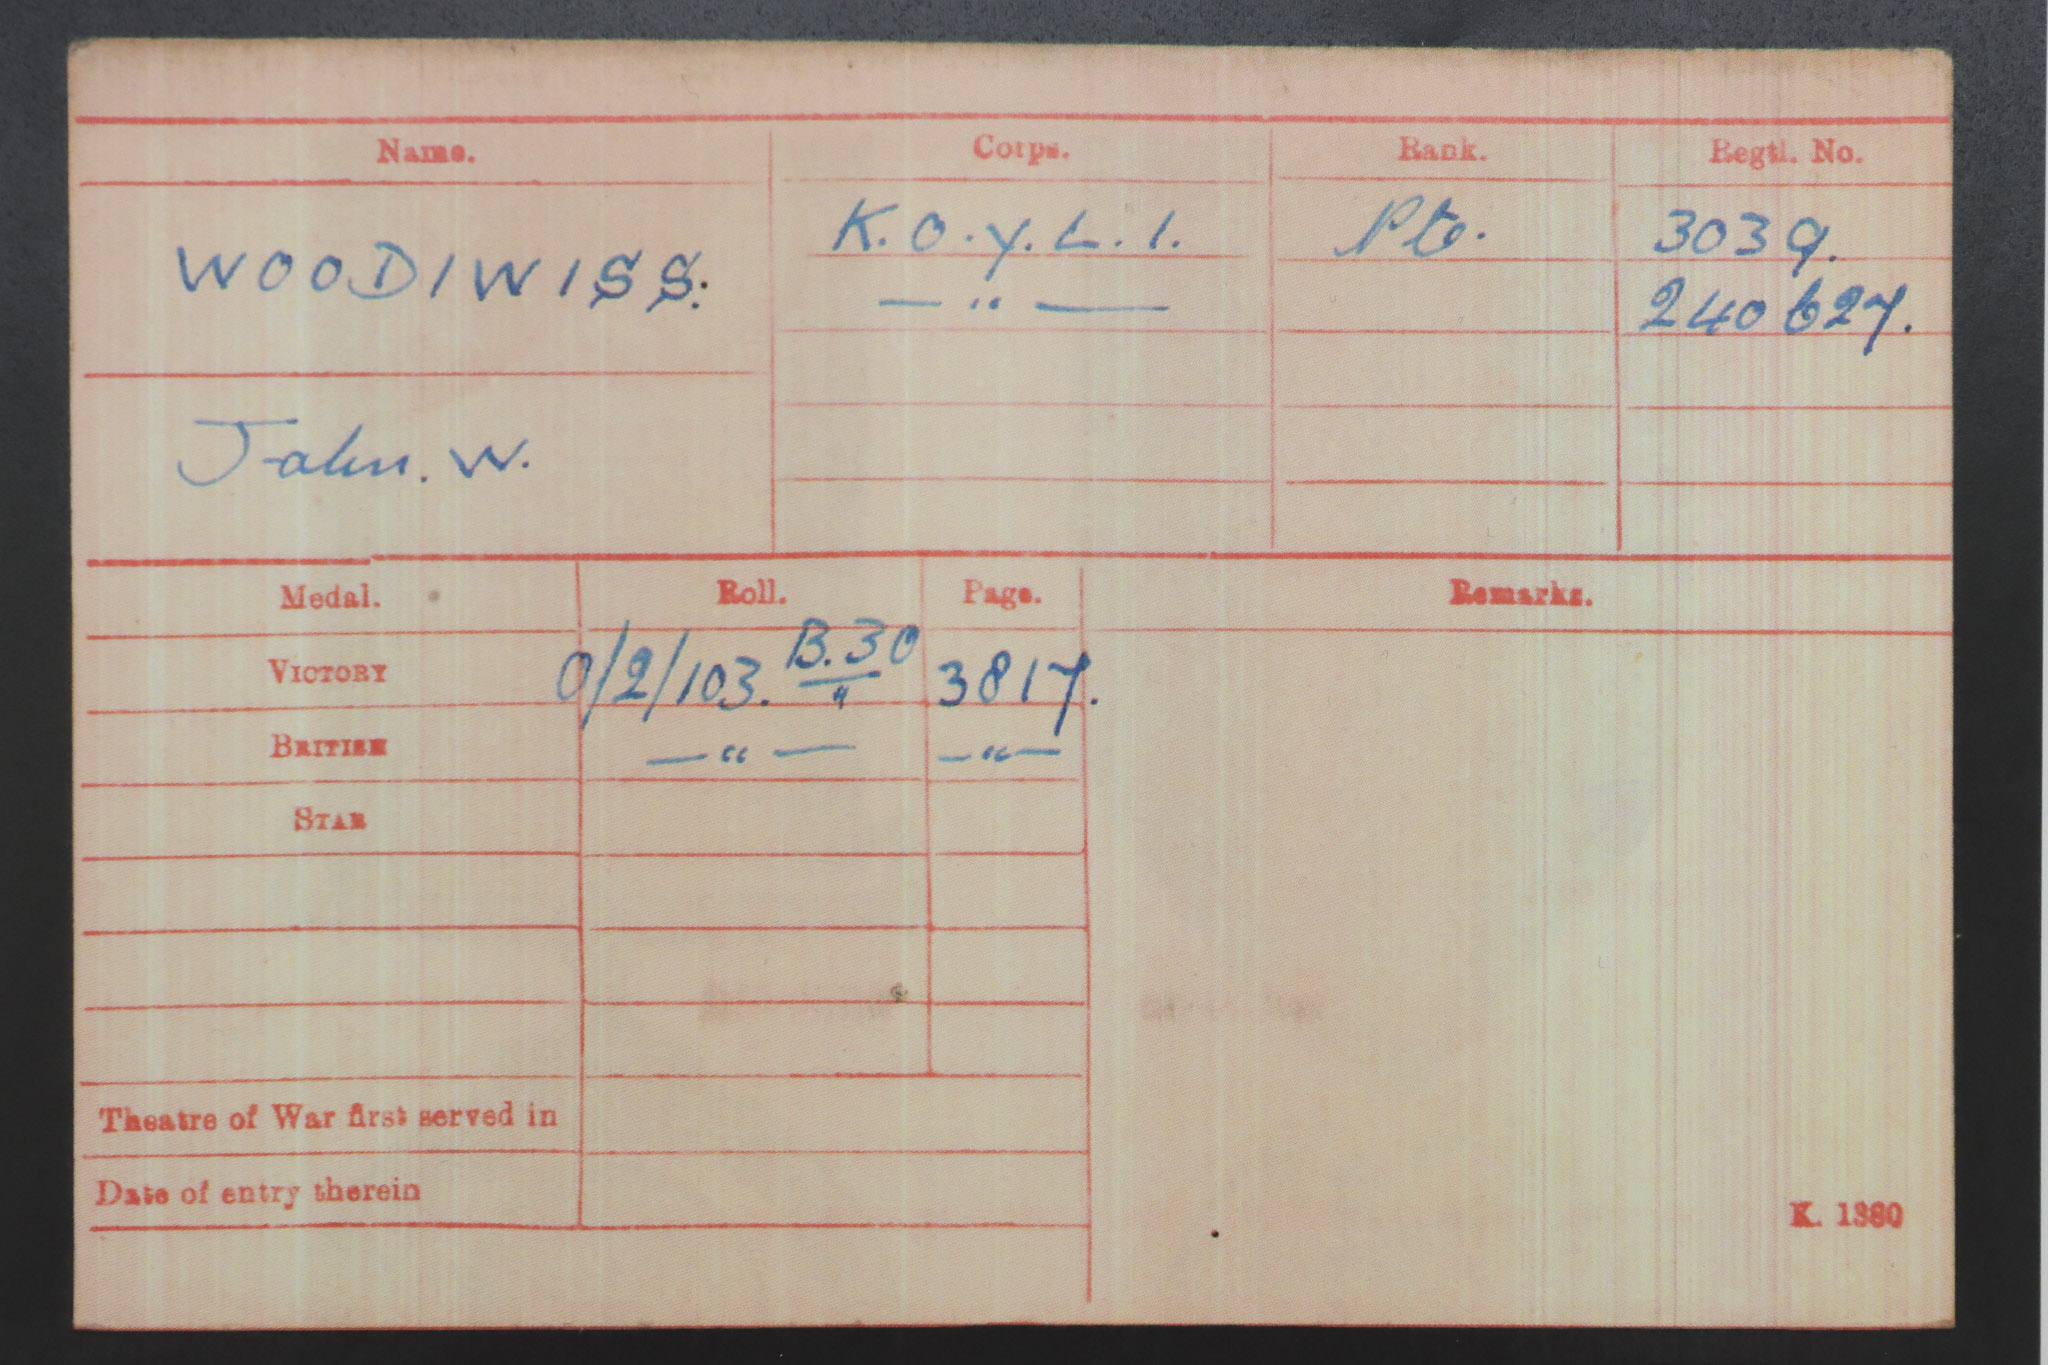 Name. Corps. Rank. Regtl. No.
WOODIWISS. K.O.Y.L.I. Pte. 3039.
— " — 240627.
John. W.
Medal. Roll. Page. Remarks.
VICTORY O/2/103. B.30 " 3817.
BRITISH — " — — " —
STAR
Theatre of War first served in
Date of entry therein
K. 1380